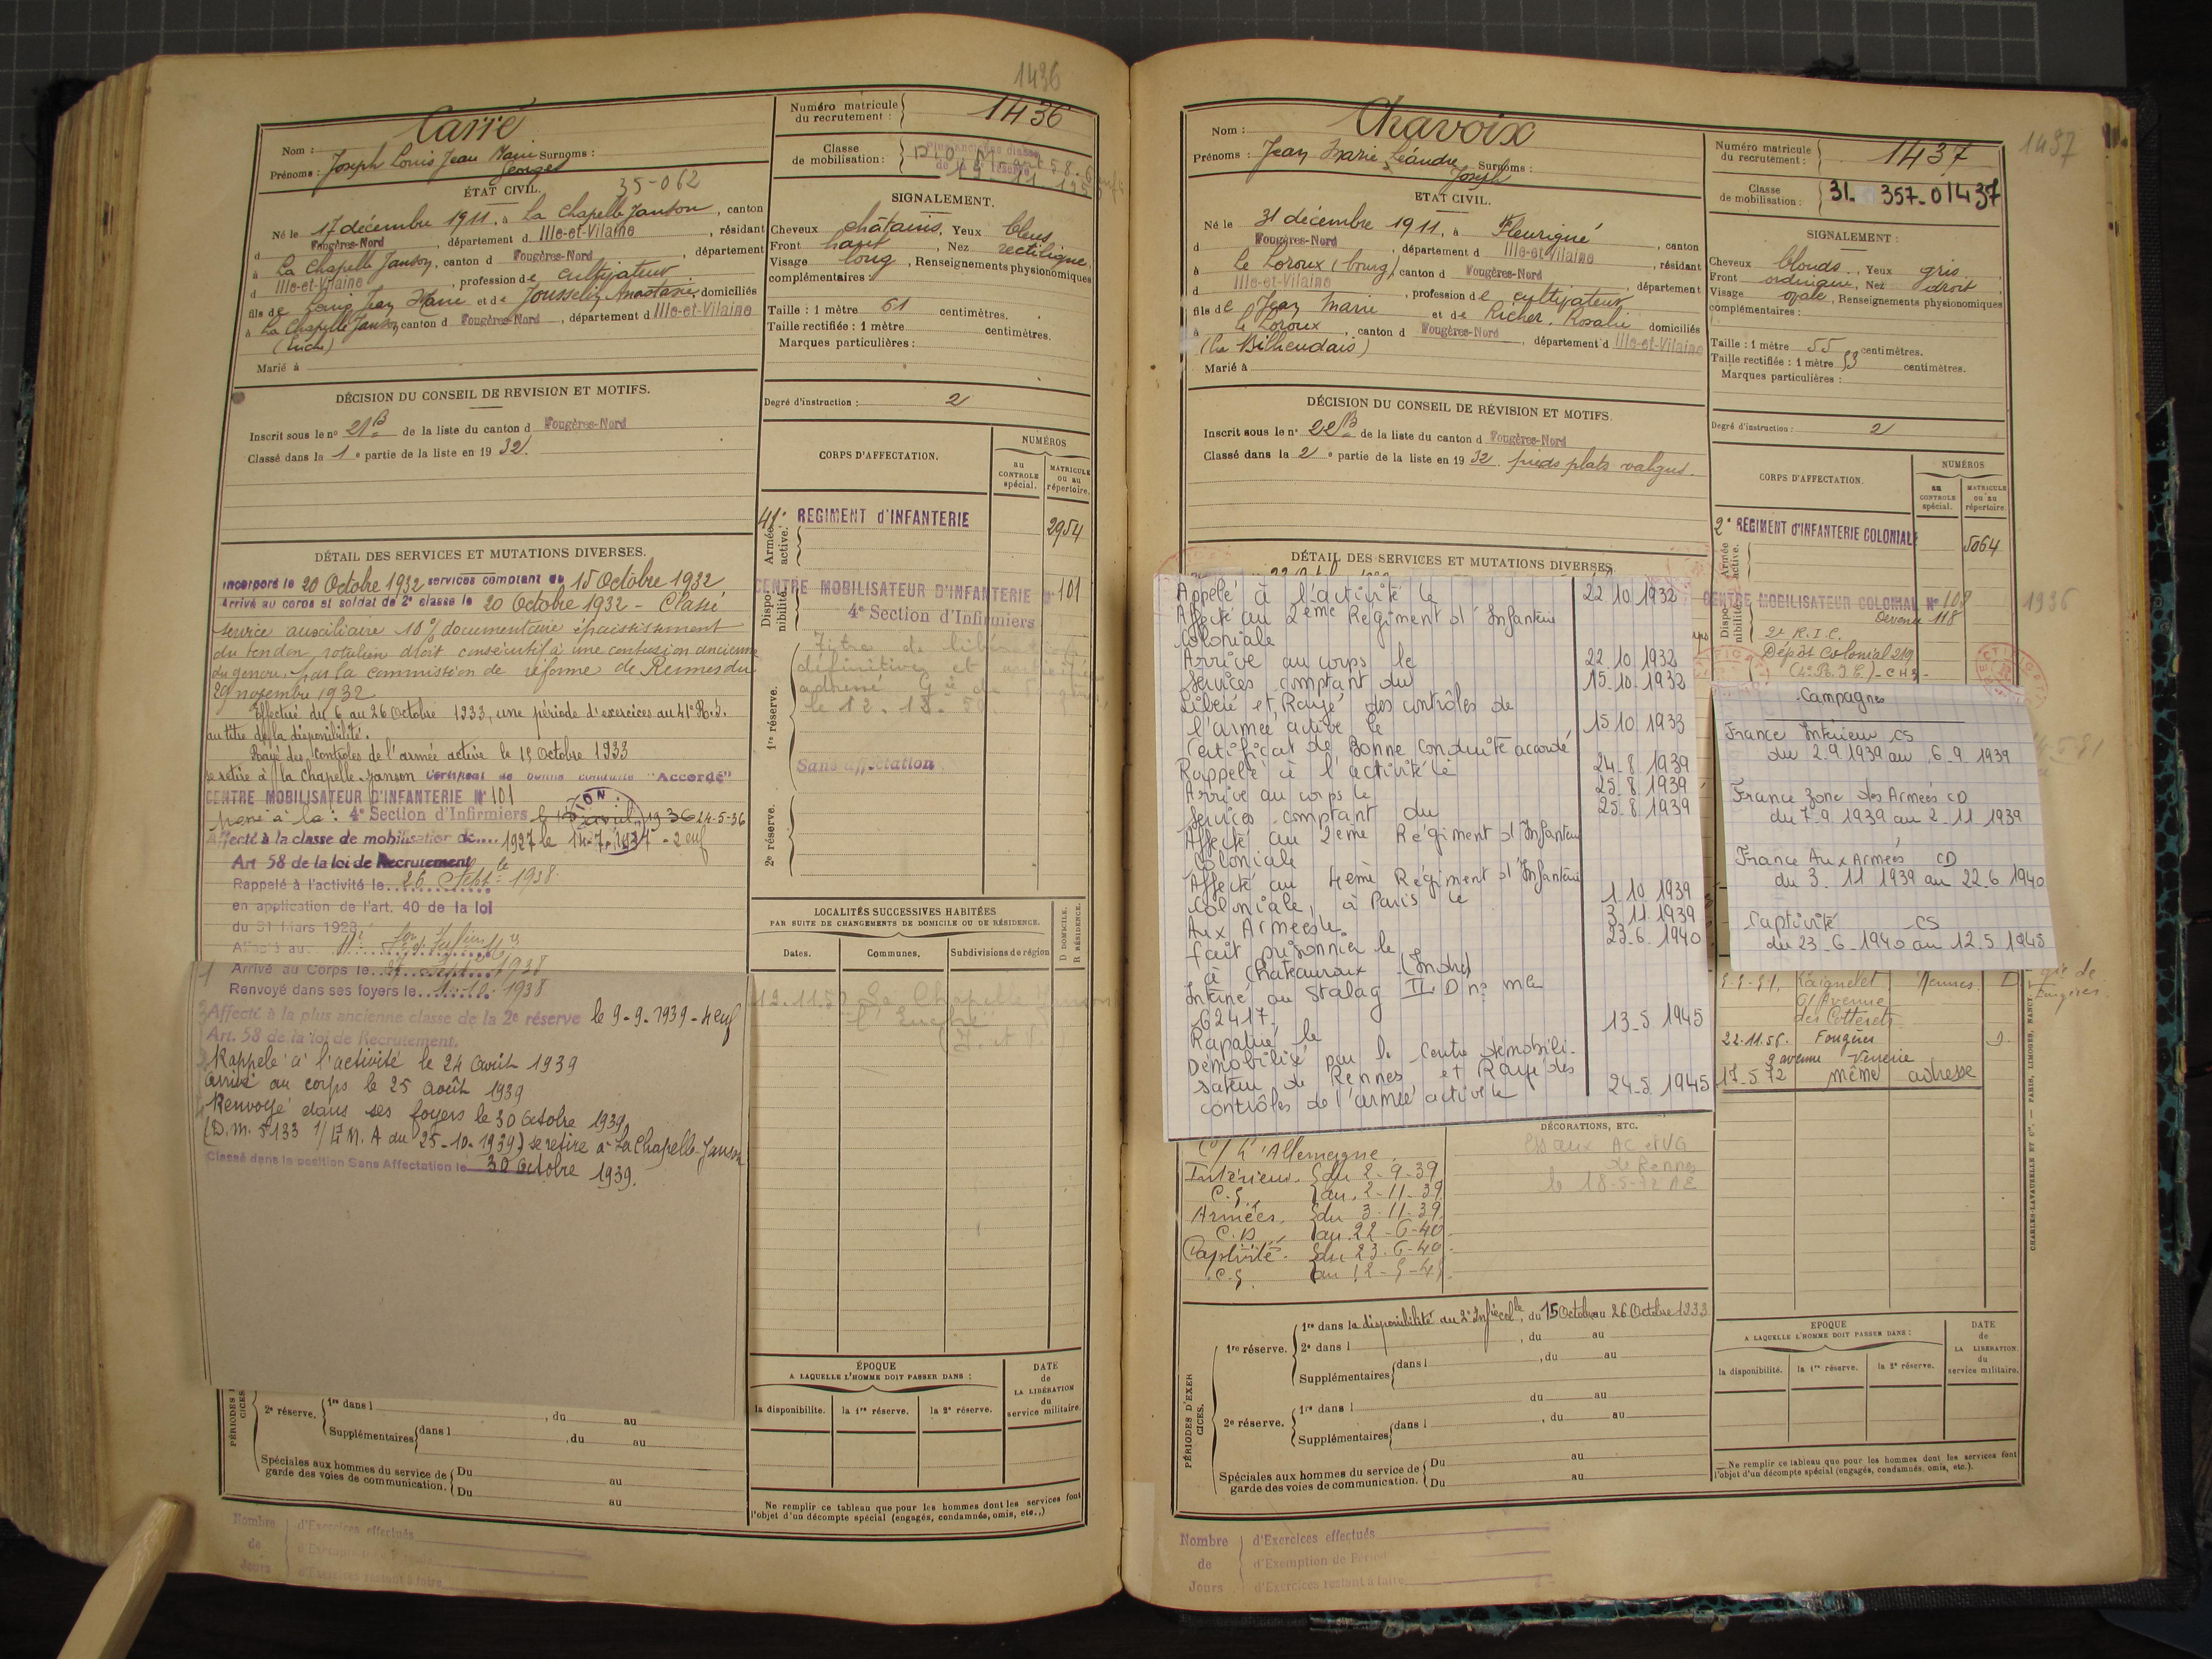 1436
Nom : Carré
Prénoms : Joseph Louis Jean Marie Surnoms :
Georges
ÉTAT CIVIL. 35-062
Né le 17 décembre 1911, à La Chapelle Janson, canton
d Fougères-Nord, département d Ille-et-Vilaine, résidant
à La Chapelle Janson, canton d Fougères-Nord, département
d Ille-et-Vilaine, profession de cultivateur
fils de Louis Jean Marie et de Jousselin Anastasie, domiciliés
à La Chapelle Janson, canton d Fougères-Nord, département d Ille-et-Vilaine
Marié à
DÉCISION DU CONSEIL DE RÉVISION ET MOTIFS.
Inscrit sous le nº 21 B de la liste du canton d Fougères-Nord
Classé dans la 1e partie de la liste en 1932.
DÉTAIL DES SERVICES ET MUTATIONS DIVERSES.
Incorporé le 20 Octobre 1932 services comptant du 15 Octobre 1932
Arrivé au corps et soldat de 2e classe le 20 Octobre 1932 - Classé
service auxiliaire 10% documentaire épaississement
du tendon rotulien droit consécutif à une contusion ancienne
du genou. par la commission de réforme de Rennes du
29 novembre 1932
Effectué du 6 au 26 Octobre 1933, une période d'exercices au 41e R.I.
au titre de la disponibilité.
Rayé des Contrôles de l'armée active le 15 Octobre 1933
se retire à la Chapelle-Janson Certificat de bonne conduite "Accordé"
CENTRE MOBILISATEUR D'INFANTERIE Nº 101
passé à la : 4e Section d'Infirmiers le 24-5-36
Affecté à la classe de mobilisation de.... 1927 le 14-7-1937 - 2 enf
Art 58 de la loi de Recrutement
Rappelé à l'activité le 26 Septbre 1938
en application de l'art. 40 de la loi
du 31 Mars 1928
Arrivé au Corps le 27 Sept 1938
Renvoyé dans ses foyers le 1-10-1938
Affecté à la plus ancienne classe de la 2e réserve le 9-9-1939 - 4 enf
Art. 58 de la loi de Recrutement.
Rappelé à l'activité le 24 Août 1939
arrivé au corps le 25 août 1939
Renvoyé dans ses foyers le 30 Octobre 1939,
(D.M. 5133 1/E.M.A du 25-10-1939) se retire à La Chapelle-Janson
Classé dans la position Sans Affectation le 30 Octobre 1939.
PÉRIODES D'EXERCICES.
2e réserve. 1re dans l , du au
Supplémentaires dans l , du au
Spéciales aux hommes du service de garde des voies de communication. Du au
Du au
Nombre de Jours
d'Exercices effectués
d'Exemption de Période
d'Exercices restant à faire
Numéro matricule du recrutement : 1436
Classe de mobilisation :
Plus ancienne classe
de la 2e réserve
SIGNALEMENT.
Cheveux châtains, Yeux bleus
Front haut, Nez rectiligne
Visage long, Renseignements physionomiques
complémentaires
Taille : 1 mètre 61 centimètres.
Taille rectifiée : 1 mètre centimètres.
Marques particulières :
Degré d'instruction : 2
CORPS D'AFFECTATION.
NUMÉROS
au CONTROLE spécial.
MATRICULE ou au répertoire.
Armée active.
41e REGIMENT d'INFANTERIE 2954
Disponibilité.
CENTRE MOBILISATEUR D'INFANTERIE Nº 101
4e Section d'Infirmiers
1re réserve.
Titre de libération
définitive
le 12.12.59
Sans affectation
2e réserve.
LOCALITÉS SUCCESSIVES HABITÉES
PAR SUITE DE CHANGEMENTS DE DOMICILE OU DE RÉSIDENCE.
Dates. Communes. Subdivisions de région D DOMICILE. R RÉSIDENCE.
La Chapelle Janson
ÉPOQUE
A LAQUELLE L'HOMME DOIT PASSER DANS :
DATE de LA LIBÉRATION du service militaire.
la disponibilité. la 1re réserve. la 2e réserve.
Ne remplir ce tableau que pour les hommes dont les services font
l'objet d'un décompte spécial (engagés, condamnés, omis, etc.,)
1437
Nom : Chavoix
Prénoms : Jean Marie Léandre Surnoms :
Joseph
ETAT CIVIL.
Né le 31 décembre 1911, à Fleurigné, canton
d Fougères-Nord, département d Ille-et-Vilaine, résidant
à Le Loroux (bourg) canton d Fougères-Nord, département
d Ille-et-Vilaine, profession de cultivateur
fils de Jean Marie et de Richer, Rosalie domiciliés
à Le Loroux, canton d Fougères-Nord, département d Ille-et-Vilaine
(La Bilheudais)
Marié à
DÉCISION DU CONSEIL DE RÉVISION ET MOTIFS.
Inscrit sous le nº 22 B de la liste du canton d Fougères-Nord
Classé dans la 2e partie de la liste en 1932 pieds plats valgus.
DÉTAIL DES SERVICES ET MUTATIONS DIVERSES.
Appelé à l'activité le 22 10 1932
Affecté au 2ème Régiment d'Infanterie
Coloniale
Arrivé au corps le 22.10.1932
Services comptant du 15.10.1932
Libéré et Rayé des contrôles de
l'armée active le 15 10 1933
Certificat de Bonne Conduite accordé
Rappelé à l'activité le 24-8-1939
Arrivé au corps le 25.8.1939
Services comptant du 25.8.1939
Affecté au 2ème Régiment d'Infanterie
Coloniale
Affecté au 4ème Régiment d'Infanterie
Coloniale, à Paris le 1.10 1939
Aux Armées le 3.11.1939
fait prisonnier le 23.6.1940
à Chateauroux (Indre)
Interné au Stalag II D nº mle
62417.
Rapatrié le 13-5 1945
Démobilisé par le Centre démobili-
sateur de Rennes et Rayé des
contrôles de l'armée active le 24-5 1945
C/ l'Allemagne.
Intérieur. du 2-9-39
C.S. au 2-11-39
Armées. du 3-11-39
C.D. au 22-6-40
Captivité. du 23-6-40
C.S. au 12-5-45
DÉCORATIONS, ETC.
aux AC et VG
de Rennes
le 18-5-72 AE
PÉRIODES D'EXERCICES.
1re réserve. 1re dans la disponibilité au 2e Infie Colle, du 15 Octobre au 26 Octobre 1933
2e dans l , du au
Supplémentaires dans l , du au
du au
2e réserve. 1re dans l du au
Supplémentaires dans l , du au
Spéciales aux hommes du service de garde des voies de communication. Du au
Du au
Nombre de Jours
d'Exercices effectués
d'Exemption de Période
d'Exercices restant à faire
Numéro matricule du recrutement : 1437
Classe de mobilisation : 31. 357-01437
SIGNALEMENT :
Cheveux blonds, Yeux gris
Front ordinaire, Nez droit
Visage ovale, Renseignements physionomiques
complémentaires :
Taille : 1 mètre 55 centimètres.
Taille rectifiée : 1 mètre 53 centimètres.
Marques particulières :
Degré d'instruction : 2
CORPS D'AFFECTATION.
NUMÉROS
au CONTROLE spécial.
MATRICULE ou au répertoire.
Armée active.
2e REGIMENT D'INFANTERIE COLONIALE 5064
Disponibilité.
CENTRE MOBILISATEUR COLONIAL Nº 108 1936
Devenu 118
2e R.I.C.
Dépôt Colonial 219
Campagnes
France Intérieur CS
du 2.9.1939 au 6.9.1939
France Zone des Armées CD
du 7.9 1939 au 2.11 1939
France Aux Armées CD
du 3.11 1939 au 22.6 1940
Captivité CS
du 23-6-1940 au 12.5 1945
Rennes. D
61 Avenue
des Cotterets
22.11.56. Fougères D.
9 avenue Verrerie
17-5-72 même adresse
EPOQUE
A LAQUELLE L'HOMME DOIT PASSER DANS :
DATE de LA LIBERATION du service militaire.
la disponibilité. la 1re réserve. la 2e réserve.
Ne remplir ce tableau que pour les hommes dont les services font
l'objet d'un décompte spécial (engagés, condamnés, omis, etc.).
CHARLES-LAVAUZELLE ET Cie. — PARIS, LIMOGES, NANCY.